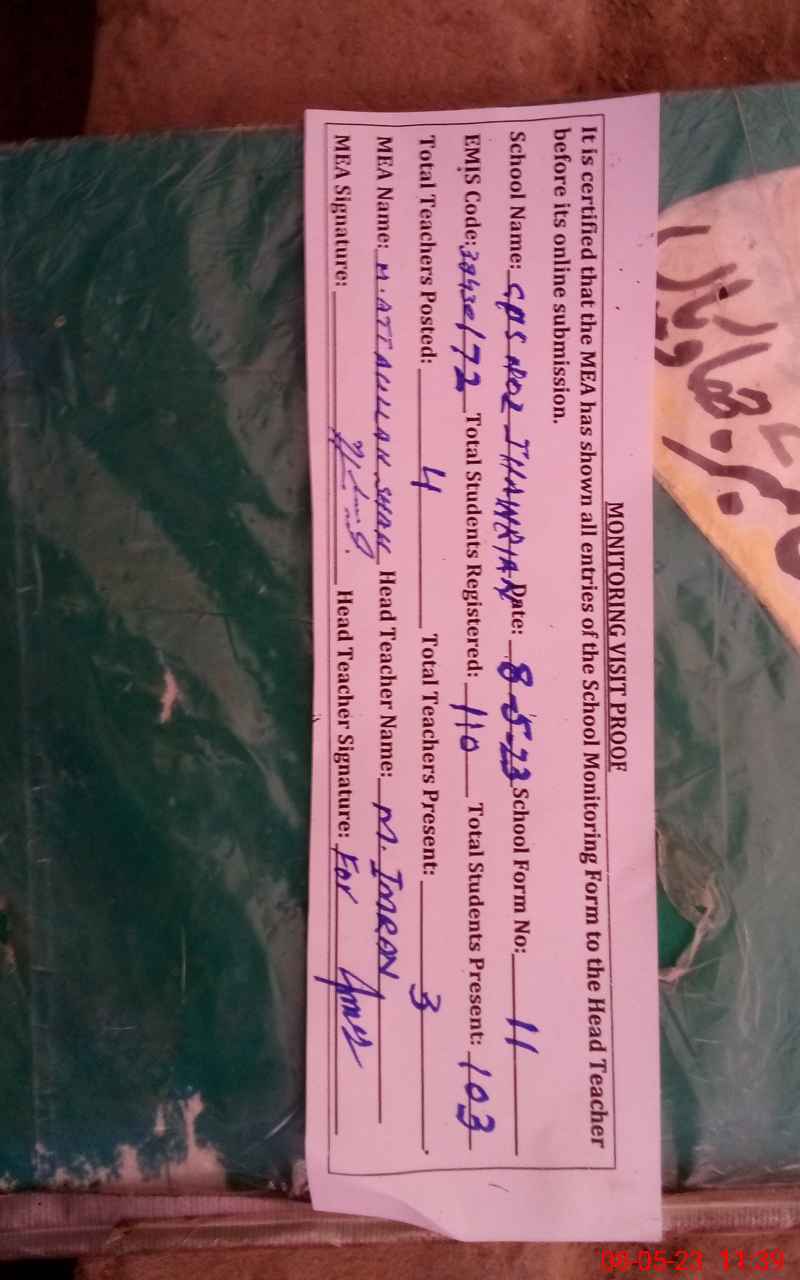 MONITORING VISIT PROOF
It is certified that the MEA has shown all entries of the School Monitoring Form to the Head Teacher
before its online submission.
School Name: GPS NO2 Date: 8-5-23 School Form No: 11
EMIS Code: Total Students Registered: 110 Total Students Present: 103
Total Teachers Posted: 4 Total Teachers Present: 3
MEA Name: M. ATTAULLAH SHAH Head Teacher Name: M. IMRAN
MEA Signature: Head Teacher Signature: For
08-05-23 11:39